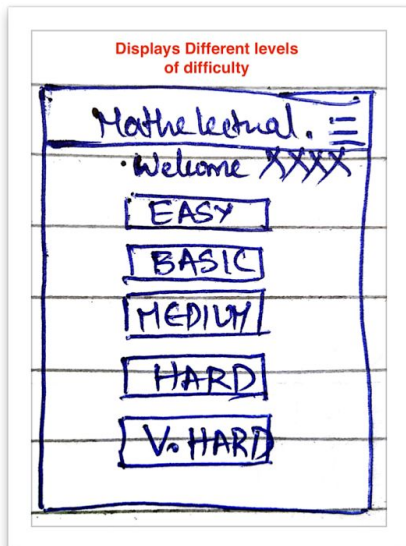 Displays Different levels
of difficulty
Mathelectual.
Welcome XXXX
EASY
BASIC
MEDIUM
HARD
V. HARD